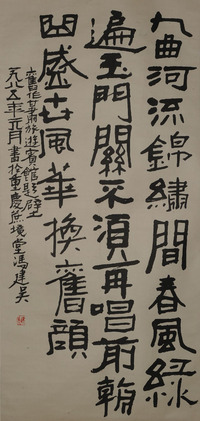 九曲河流錦繡間春風綠
遍玉門關不須再唱前朝
曲盛世風華換舊顔
舊作甘肅旅遊賓館題壁
一九八五年元月書於重慶蔗境堂馮建吳